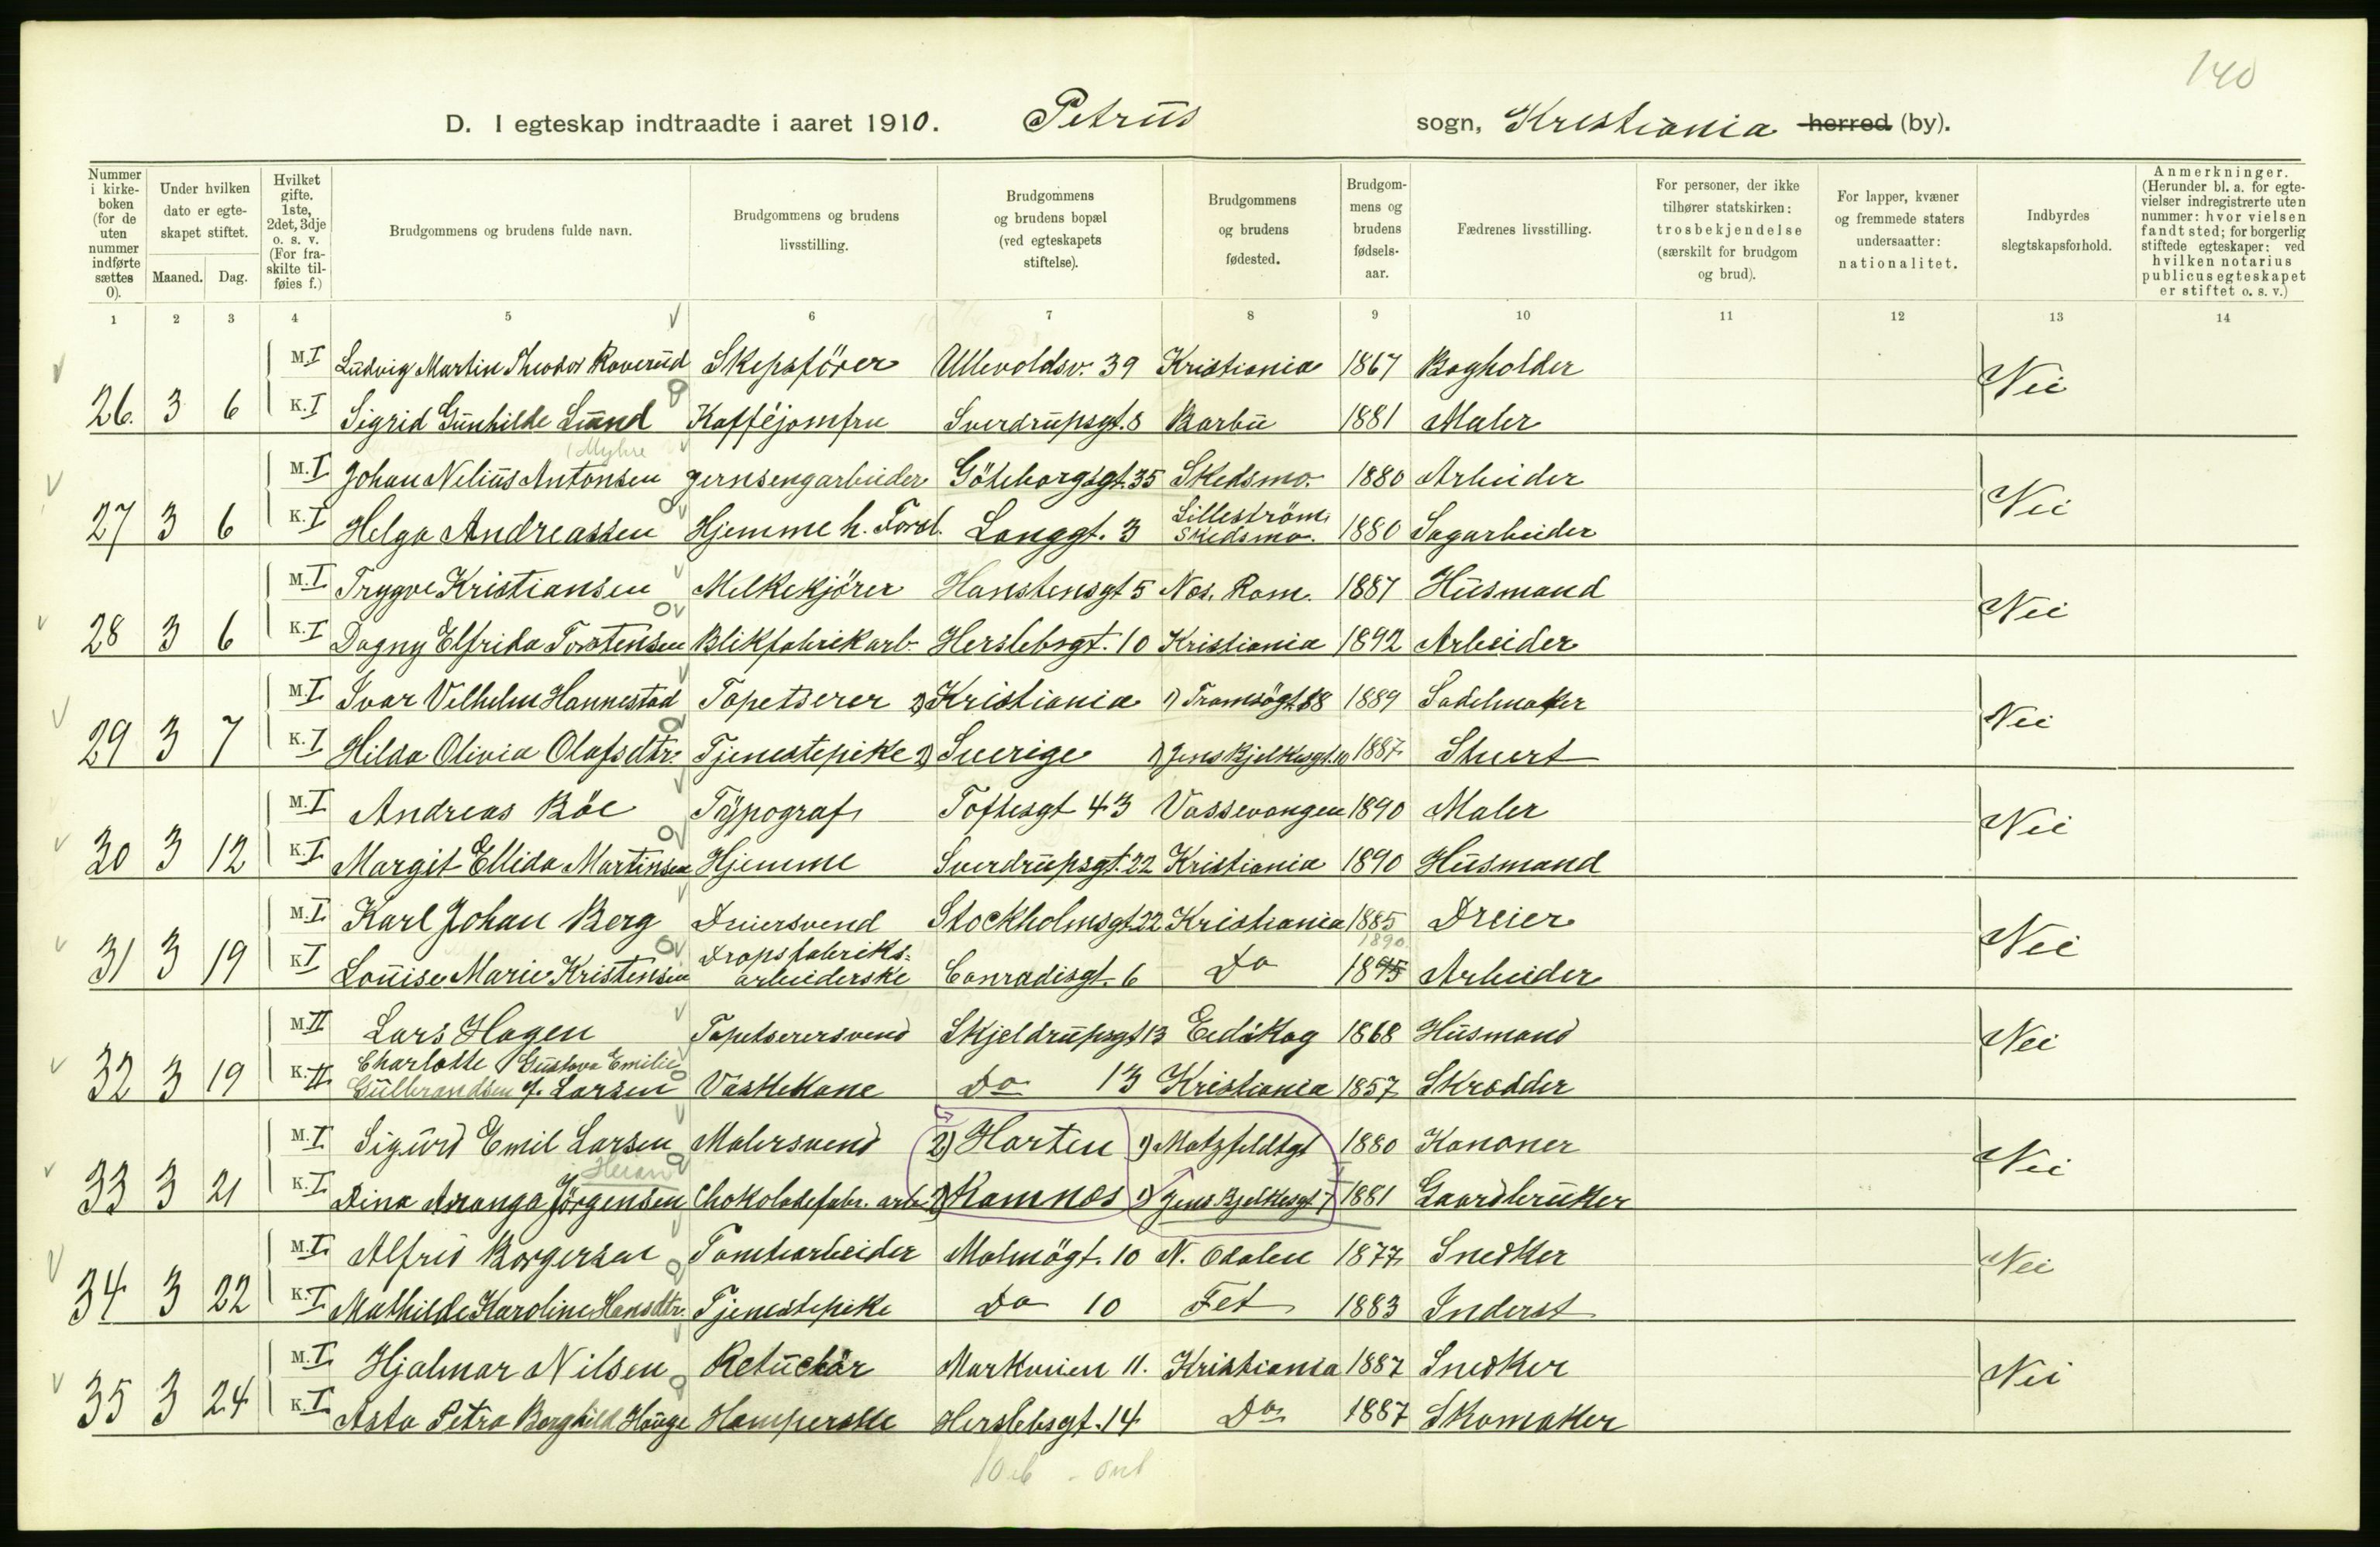 140
D. I egteskap indtraadte i aaret 1910. Petrus sogn, Kristiania herred (by).
Nummer i kirkeboken (for de uten nummer indførte sættes 0).
Under hvilken dato er egteskapet stiftet.
Maaned. Dag.
Hvilket gifte. 1ste, 2det, 3dje o. s. v. (For fraskilte tilføies f.)
Brudgommens og brudens fulde navn.
Brudgommens og brudens livsstilling.
Brudgommens og brudens bopæl (ved egteskapets stiftelse).
Brudgommens og brudens fødested.
Brudgommens og brudens fødselsaar.
Fædrenes livsstilling.
For personer, der ikke tilhører statskirken: trosbekjendelse (særskilt for brudgom og brud).
For lapper, kvæner og fremmede staters undersaatter: nationalitet.
Indbyrdes slegtskapsforhold.
Anmerkninger. (Herunder bl. a. for egtevielser indregistrerte uten nummer: hvor vielsen fandt sted; for borgerlig stiftede egteskaper: ved hvilken notarius publicus egteskapet er stiftet o. s. v.)
1 2 3 4 5 6 7 8 9 10 11 12 13 14
M. I Ludvig Martin Theodor Roverud Skepsförer Ullevoldsv. 39 Kristiania 1867 Bogholder
26. 3 6 K. I Sigrid Gunhilde Lund Kafféjomfru Sverdrupsgt. 8 Barbu 1881 Maler Nei
(Myhre
M. I Johan Nelius Antonsen Jernsengarbeider Göteborgsgt. 35 Skedsmo. 1880 Arbeider
27 3 6 K. I Helga Andreassen Hjemme h. Foræl. Langgt. 3 Lilleström Skedsmo. 1880 Sagarbeider Nei
M. I Trygve Kristiansen Melkekjörer Hanstensgt 5 Nes. Rom. 1887 Husmand
28 3 6 K. I Dagny Elfrida Torstensen Blikfabrikarb. Herslebsgt. 10 Kristiania 1892 Arbeider Nei
M. I Ivar Vilhelm Hannestad Tapetserer 2) Kristiania 1) Tromsögt. 88 1889 Sadelmaker
29 3 7 K. I Hilda Olivia Olafsdtr. Tjenestepike 2) Sverige 1) Jens Bjelkesgt. 10 1887 Stuert Nei
M. I Andreas Böe Typograf Toftesgt 43 Vossevangen 1890 Maler
30 3 12 K. I Margit Ellida Martinsen Hjemme Sverdrupsgt. 22 Kristiania 1890 Husmand Nei
M. I Karl Johan Berg Dreiersvend Stockholmsgt. 22 Kristiania 1885 Dreier
1890
31 3 19 K. I Louise Marie Kristensen Dropsfabriks- arbeiderske Conradisgt. 6 Do 1895 Arbeider Nei
M. II Lars Hagen Tapetserersvend Skjeldrupsgt 13 Eidskog 1868 Husmand
32 3 19 K. II Charlotte Gustava Emilie Gulbrandsen f. Larsen Vaskekone Do 13 Kristiania 1857 Skrædder Nei
M. I Sigurd Emil Larsen Malersvend 2) Horten 1) Motzfeldtsgt 1880 Kanoner
33 3 21 K. I Dina Aranga Jörgensen Chokoladefabr. arb. 2) Ramnes 1) Jens Bjelkesgt 7 1881 Gaardbruker Nei
M. I Alfred Borgersen Tomtearbeider Malmögt. 10 N. Odalen 1877 Snedker
34 3 22 K. I Mathilde Karoline Hansdtr. Tjenestepike Do 10 Fet 1883 Inderst Nei
M. I Hjalmar Nilsen Retuchör Markveien 11. Kristiania 1887 Snedker
35 3 24 K. I Asta Petra Borghild Hauge Hamperske Herslebsgt. 14 Do 1887 Skomaker Nei